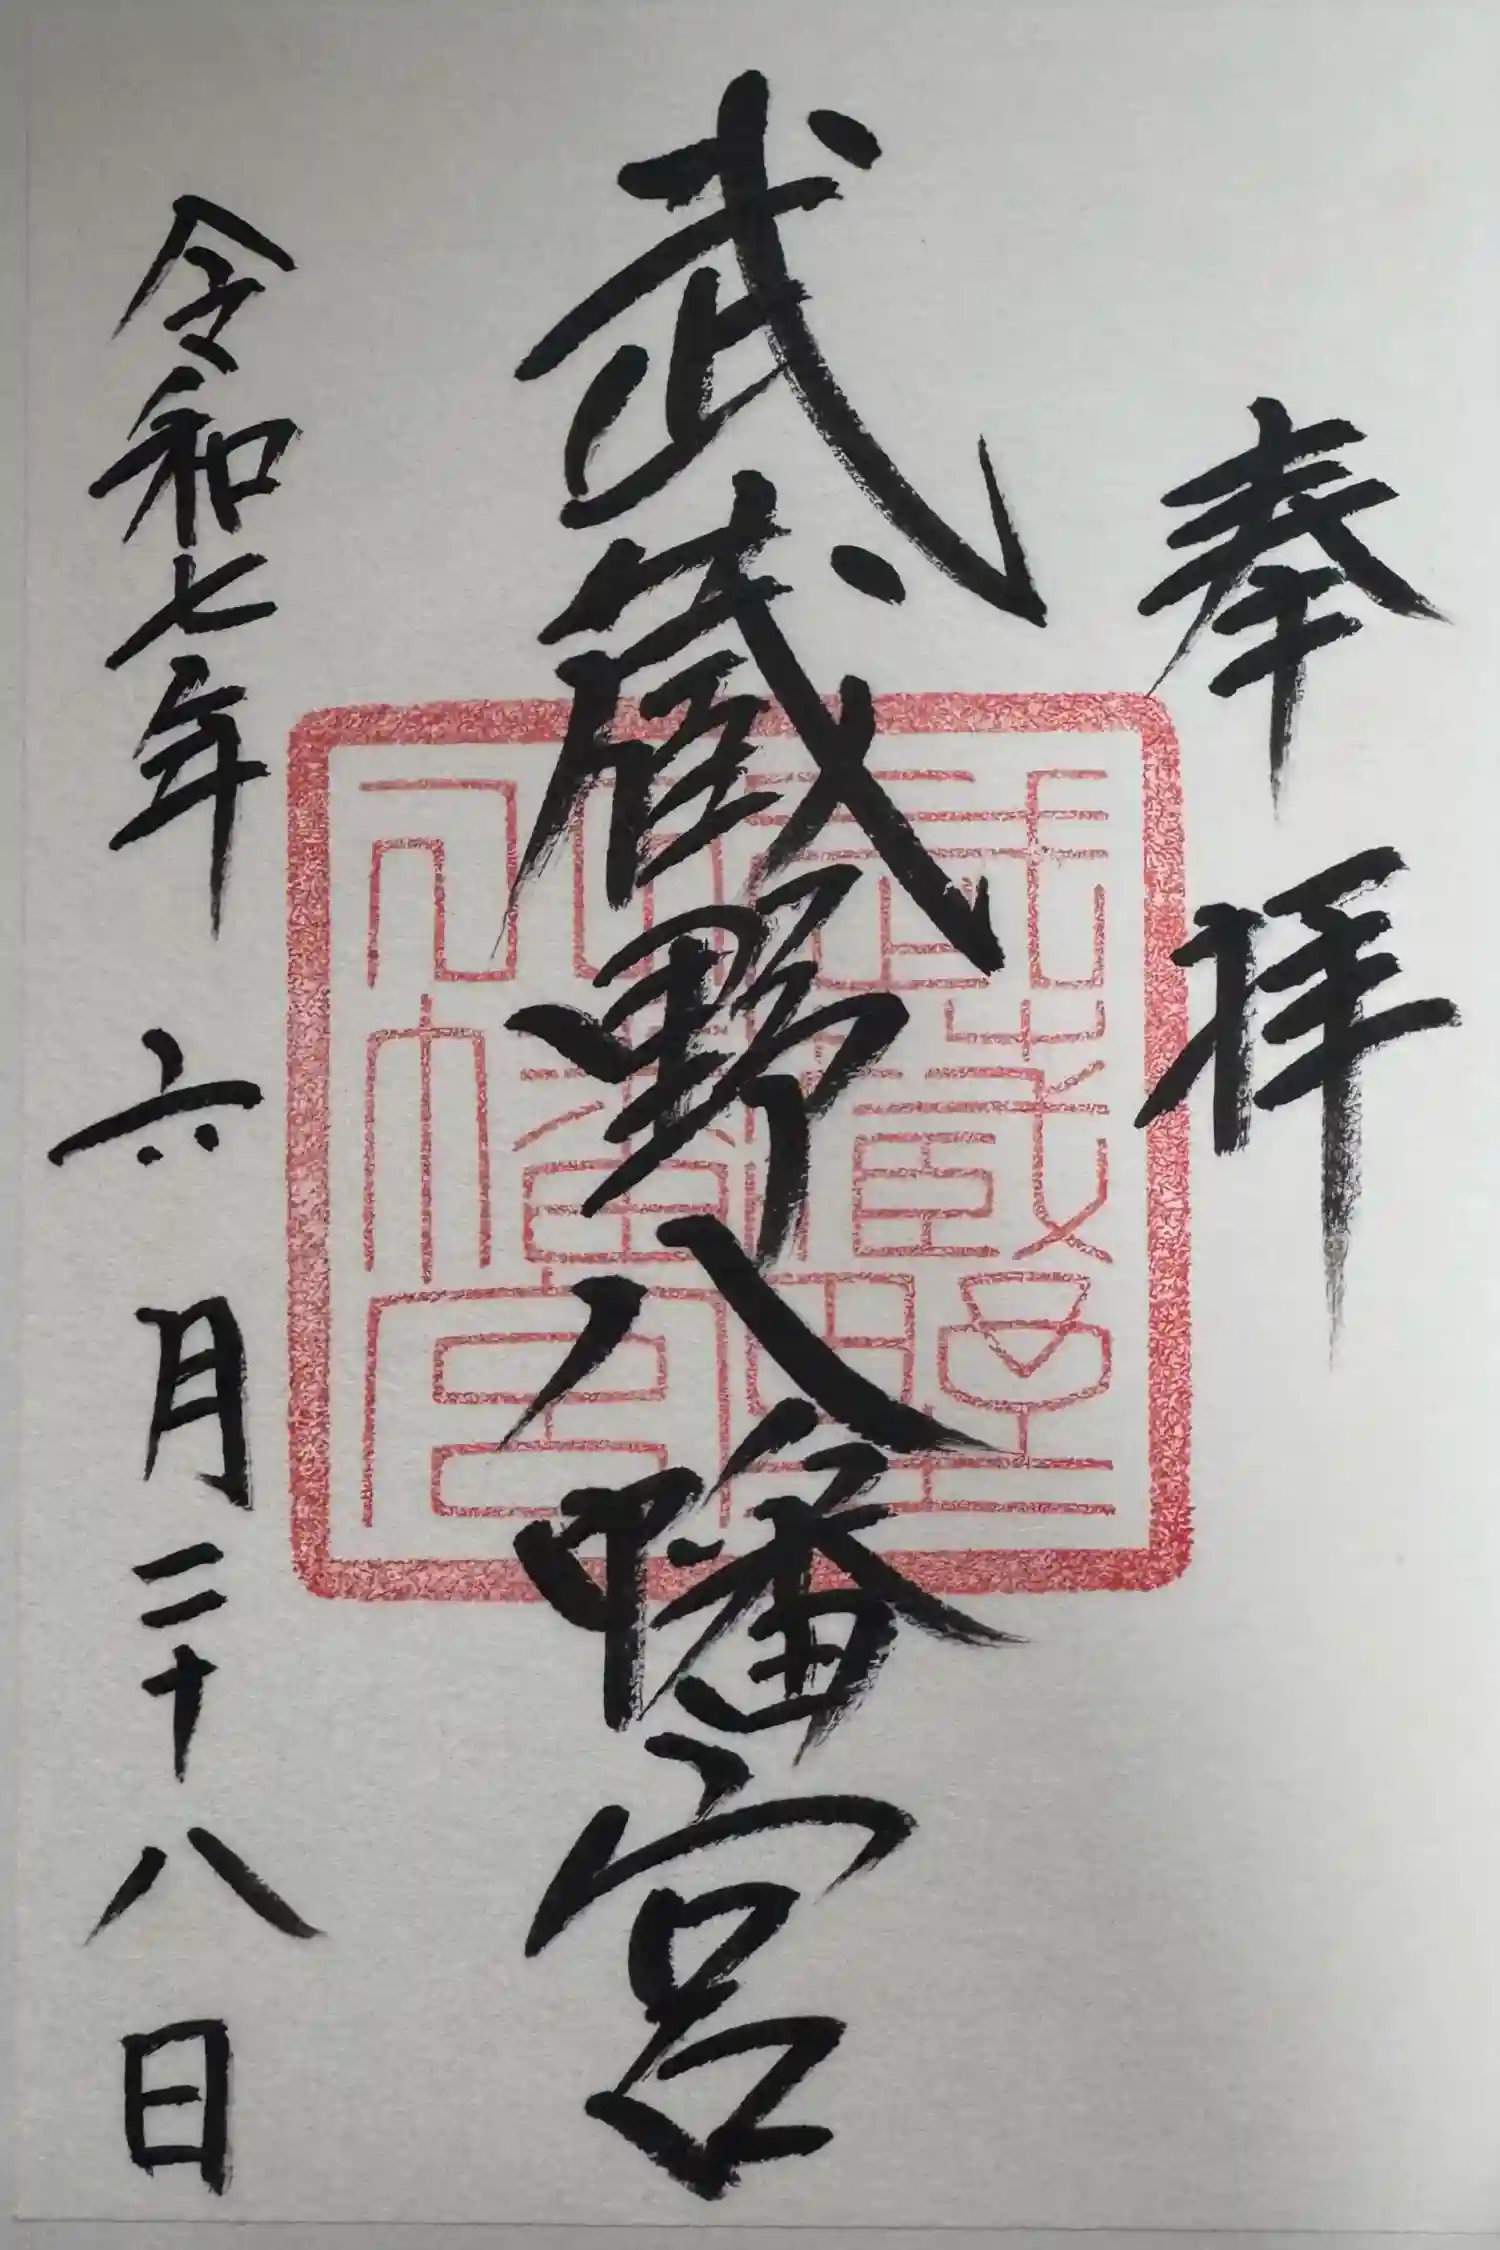 奉拝
武蔵野八幡宮
武蔵野坐八幡宮
令和七年六月二十八日